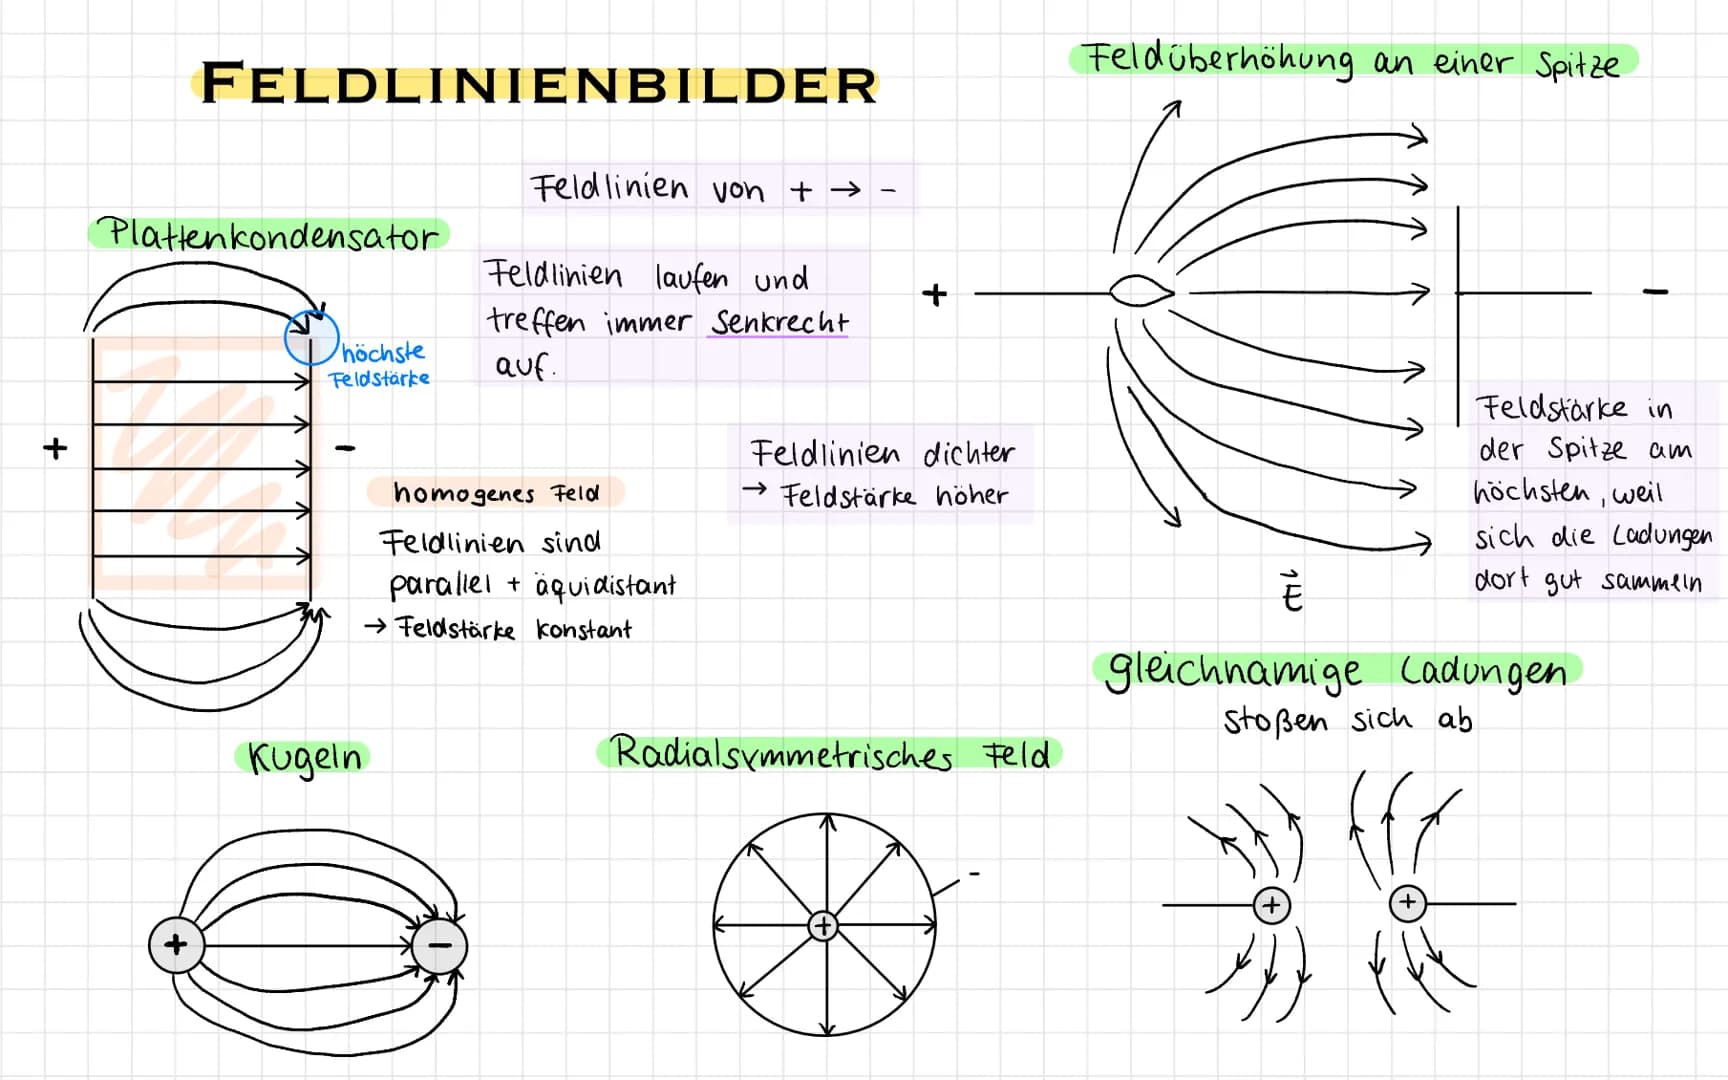 FELDLINIENBILDER
Feldlinien von + → -
Plattenkondensator
Feldlinien laufen und
treffen immer Senkrecht
auf.
höchste
Feldstärke
+
-
homogenes Feld
Feldlinien sind
parallel + äquidistant
→ Feldstärke konstant
Feldlinien dichter
→ Feldstärke höher
Feldüberhöhung an einer Spitze
+
-
Feldstärke in
der Spitze am
höchsten, weil
sich die Ladungen
dort gut sammeln
E
Kugeln
+
-
Radialsymmetrisches Feld
+
-
gleichnamige Ladungen
stoßen sich ab
+
+